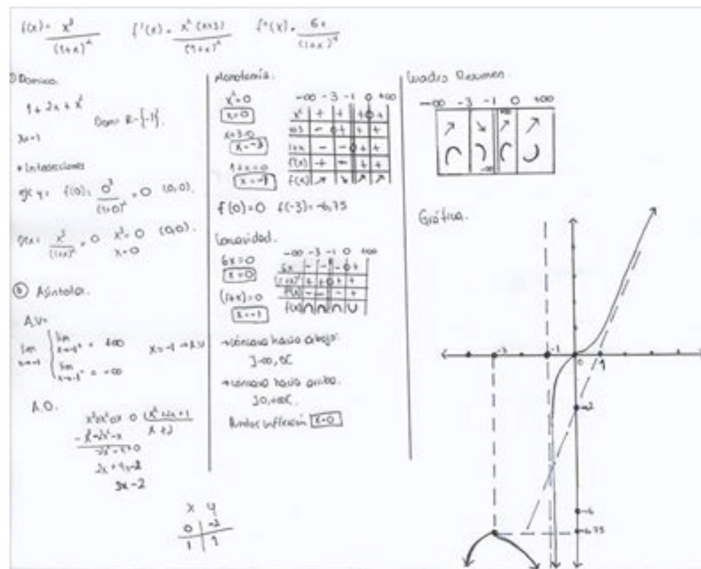 f(x) = x³/(1+x)² f'(x) = x²(x+3)/(1+x)² f''(x) = 6x/(1+x)⁴
Dominio.
1 + 2x + x²
x=-1 Dom = R-{-1}.
* Intersecciones
eje y = f(0) = 0³/(1+0)² = 0 (0,0).
eje x = x³/(1+x)² = 0 x³=0 (0,0).
x=0
Asíntotas.
A.V=
x=-1 → A.V
lim x→-1⁻ = -∞
A.O.
x²+2x+1
x + 2
3x-2
x y
0 -2
1 1
Monotonía.
x²=0
x=0
x+3=0
x=-3
1+x=0
x=-1
-∞ -3 -1 0 +∞
x² + + + 0 +
x+3 - 0 + + +
1+x - - 0 + +
f'(x) + - + +
f(x) ↗ ↘ ↗ ↗
f(0)=0 f(-3)=-6,75
Concavidad.
6x=0
x=0
(1+x)=0
x=-1
-∞ -3 -1 0 +∞
6x - - - 0 +
f(x) ∩ ∩ ∩ ∪
→ cóncava hacia abajo:
]-∞,0[
→ cóncava hacia arriba.
]0,+∞[
Puntos inflexión x=0
Cuadro Resumen.
-∞ -3 -1 0 +∞
↗ ↘ ↗ ↗
∩ ∩ ∩ ∪
Gráfica.
-3 -1 0 1
-2
-6
-6.75